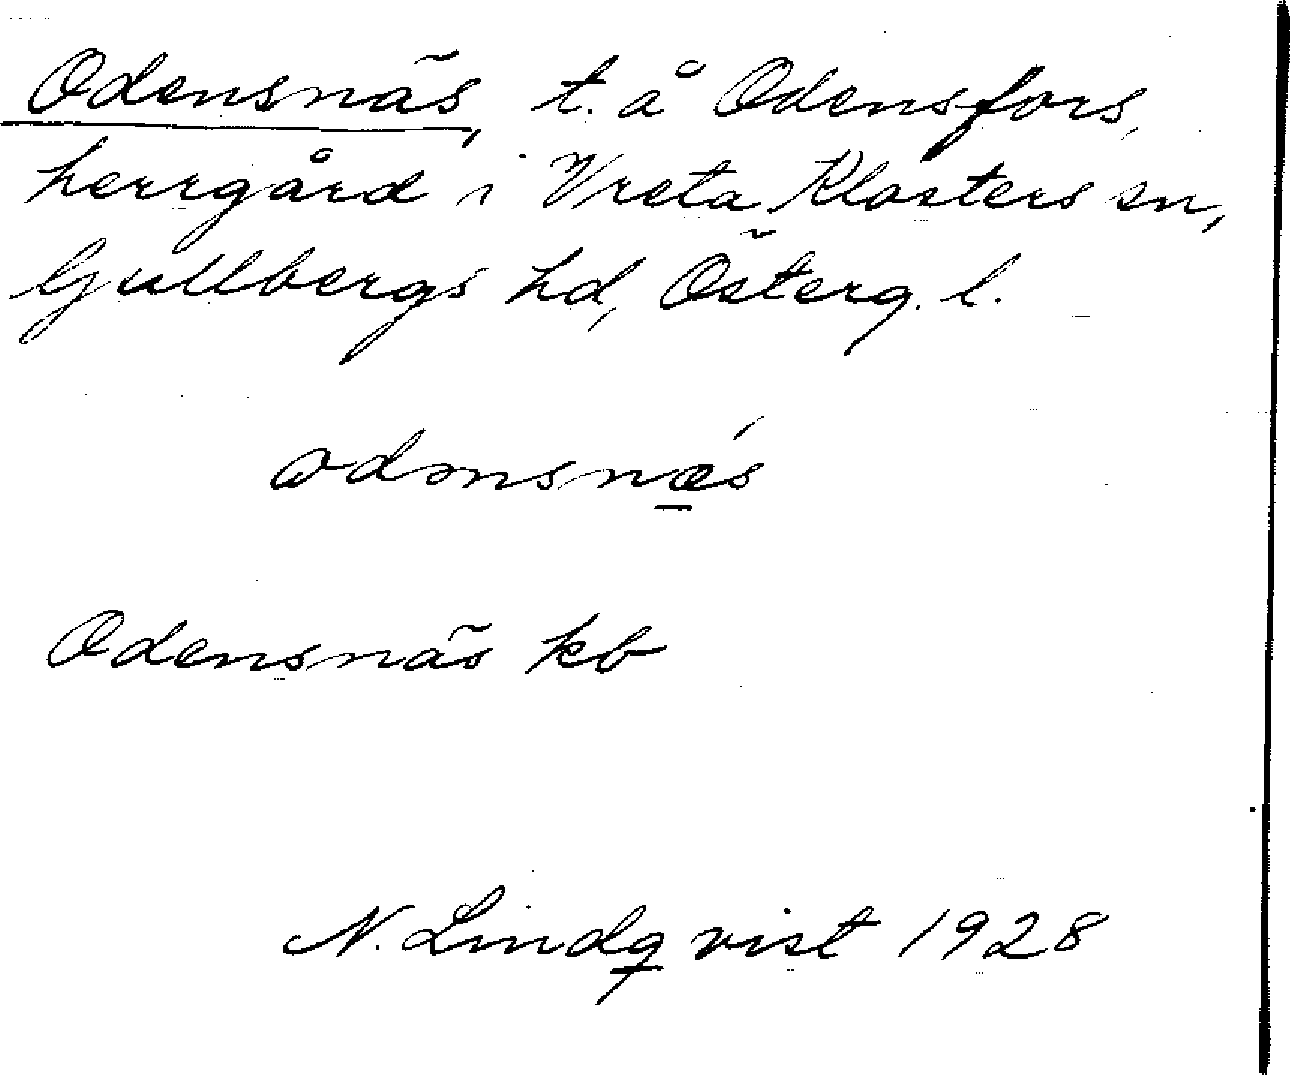 Odensnäs, t. å Odensfors,
herrgård i Vreta Klosters sn,
Gullbergs hd, Österg. l.
odənsnǽ̱s
Odensnäs kb
N. Lindqvist 1928